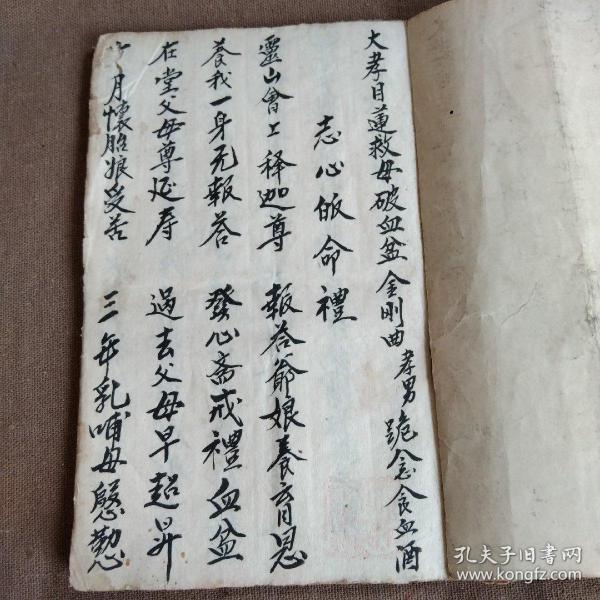 大孝目蓮救母破血盆金剛曲孝男跪念食血酒
志心皈命禮
靈山會上释迦尊 報答爺娘養育恩
養我一身无報答 發心斋戒禮血盆
在堂父母尊延寿 過去父母早超昇
十月懷胎娘受苦 三年乳哺母慇懃
孔夫子旧书网
www.kongfz.com